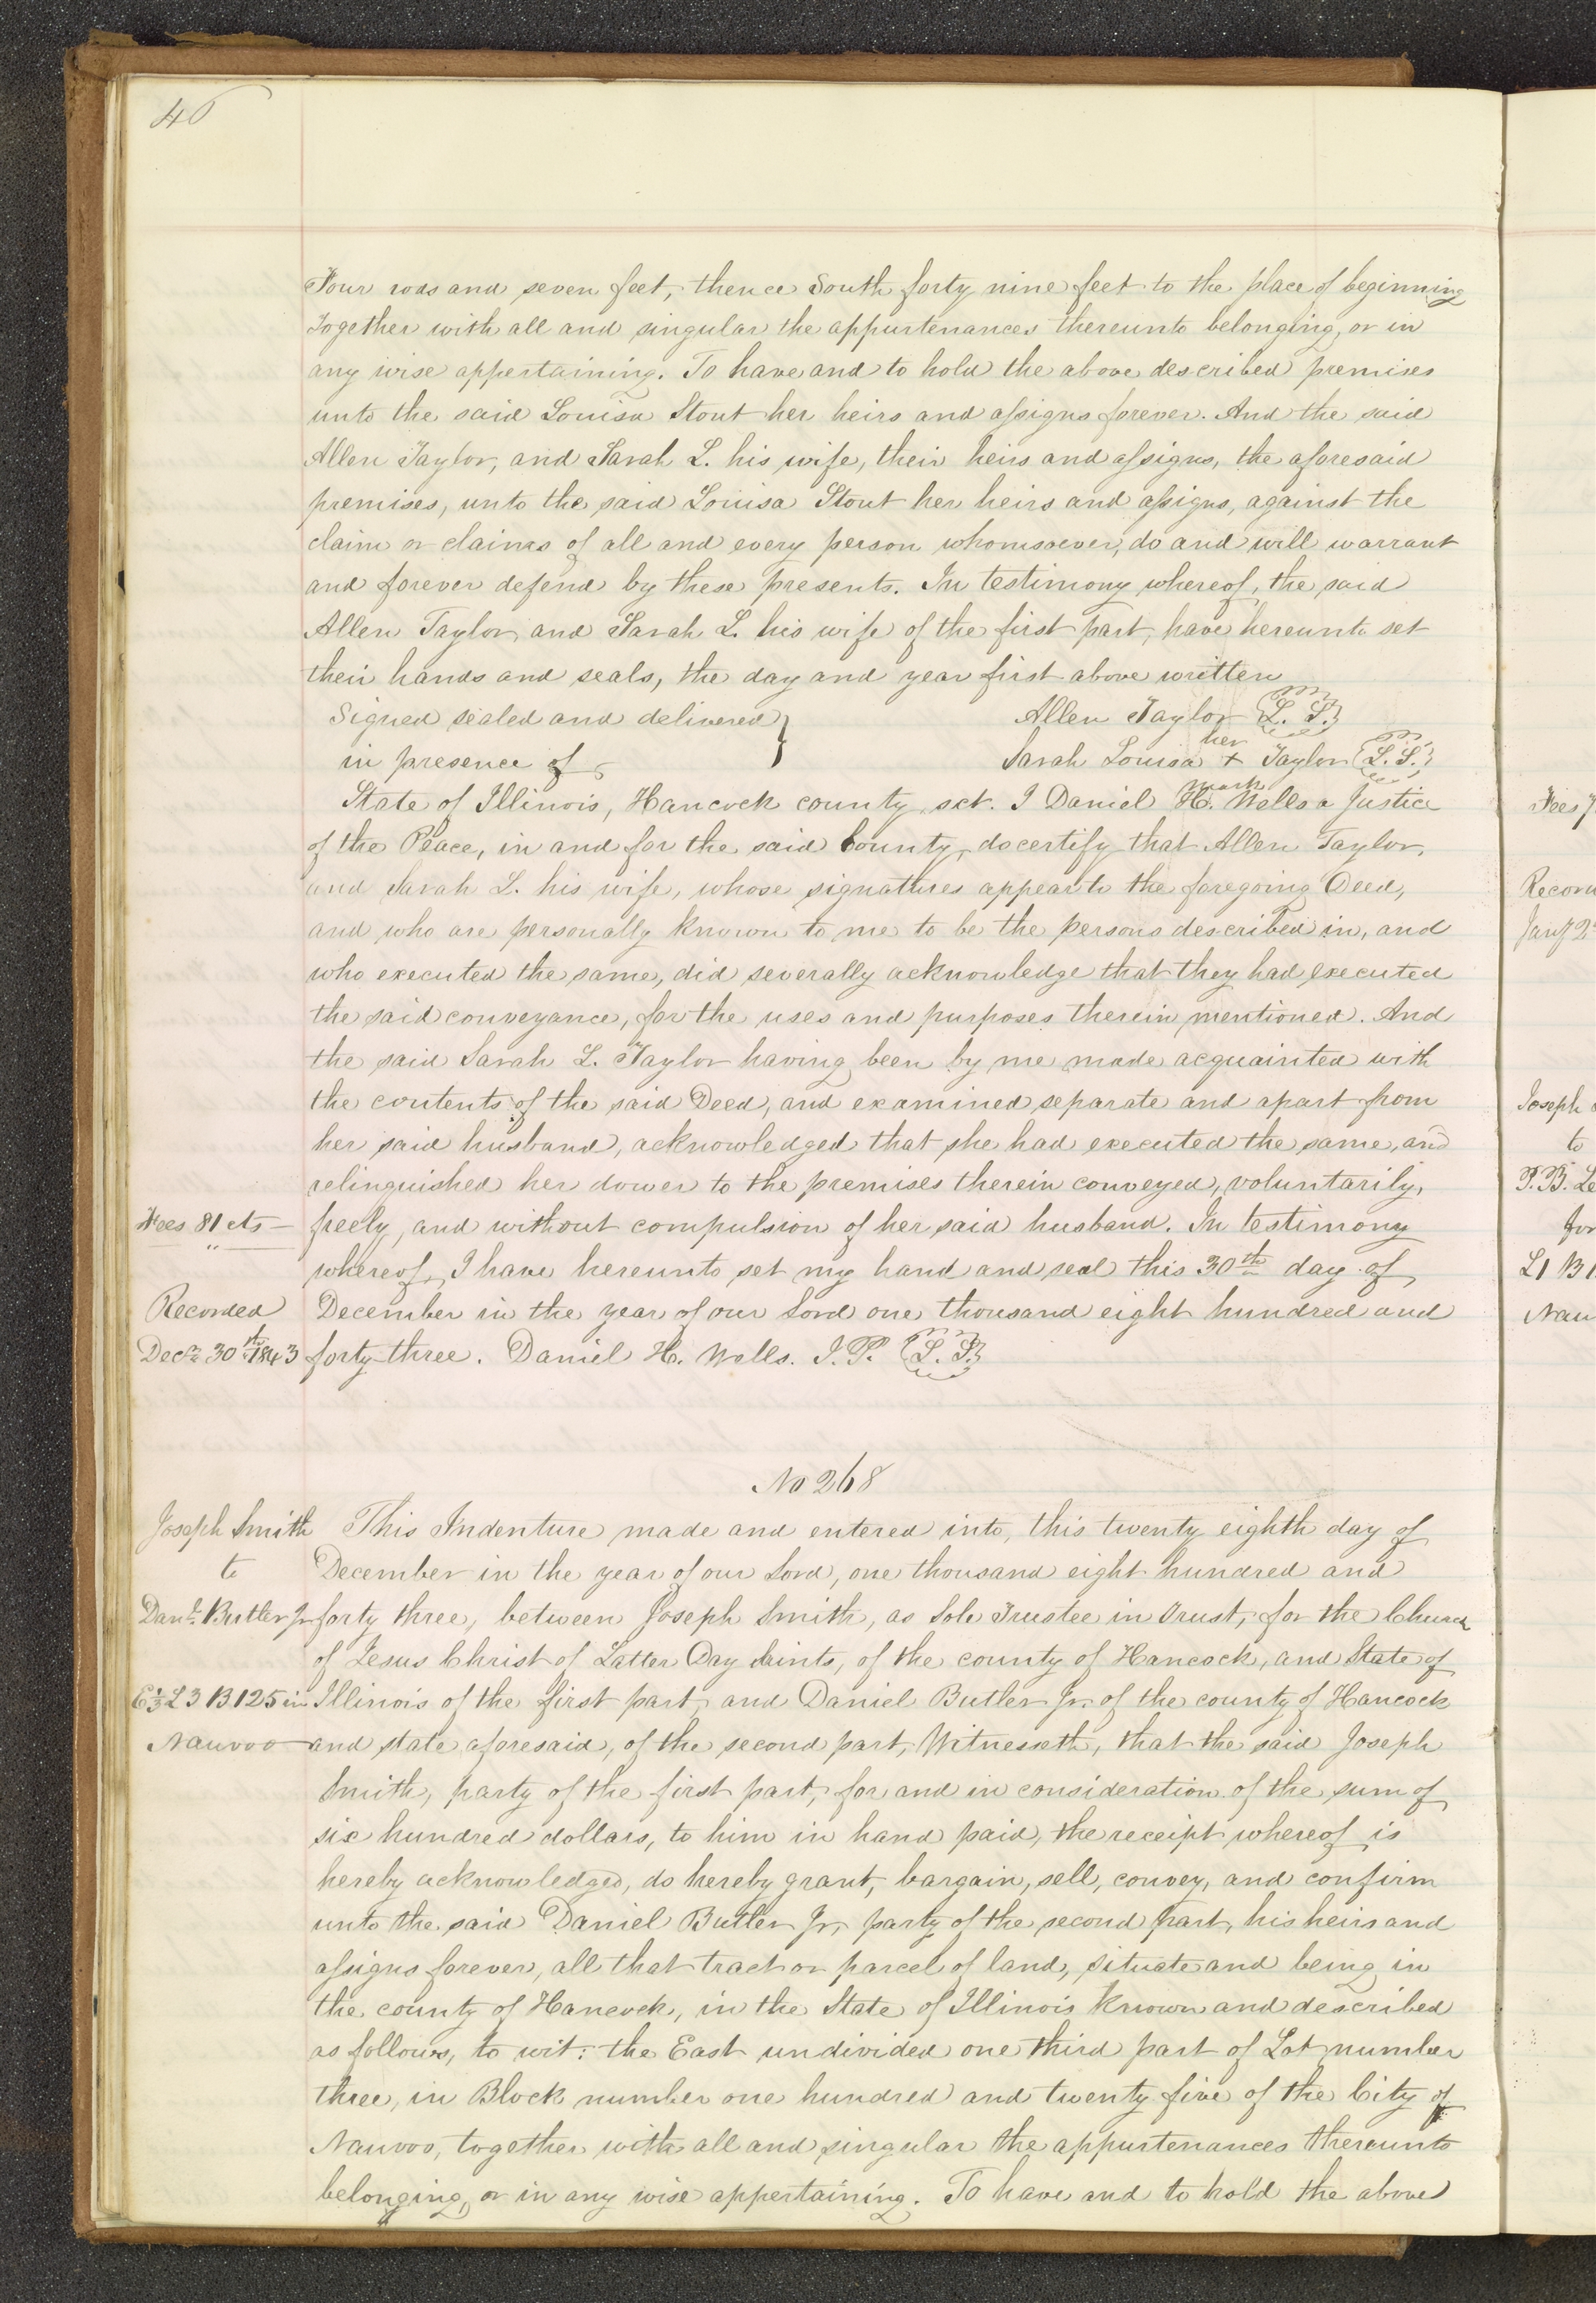 46
Four rods and seven feet, thence South forty nine feet to the place of beginning
Together with all and singular the appurtenances thereunto belonging, or in
any wise appertaining. To have and to hold the above described premises
unto the said Louisa Stout her heirs and assigns forever. And the said
Allen Taylor, and Sarah L. his wife, their heirs and assigns, the aforesaid
premises, unto the said Louisa Stout her heirs and assigns, against the
claim or claims of all and every person whomsoever, do and will warrant
and forever defend by these presents. In testimony whereof, the said
Allen Taylor and Sarah L. his wife of the first part, have hereunto set
their hands and seals, the day and year first above written
Signed sealed and delivered } Allen Taylor {L. S.}
in presence of Sarah Louisa her + mark Taylor {L. S.}
State of Illinois, Hancock county, sct. I Daniel H. Wells a Justice
of the Peace, in and for the said County, do certify that Allen Taylor,
and Sarah L. his wife, whose signatures appear to the foregoing Deed,
and who are personally known to me to be the persons described in, and
who executed the same, did severally acknowledge that they had executed
the said conveyance, for the uses and purposes therein mentioned. And
the said Sarah L. Taylor having been by me made acquainted with
the contents of the said Deed, and examined separate and apart from
her said husband, acknowledged that she had executed the same, and
relinquished her dower to the premises therein conveyed, voluntarily,
Fees 81 cts — freely, and without compulsion of her said husband. In testimony
whereof, I have hereunto set my hand and seal this 30th day of
Recorded December in the year of our Lord one thousand eight hundred and
Decr 30th 1843 forty-three. Daniel H. Wells. J. P. {L. S.}
No 268
Joseph Smith This Indenture made and entered into, this twenty eighth day of
to December in the year of our Lord, one thousand eight hundred and
Danl. Butler Jr forty three, between Joseph Smith, as Sole Trustee in Trust, for the Church
of Jesus Christ of Latter Day Saints, of the county of Hancock, and State of
E 1/3 L 3 B. 125 in Illinois of the first part, and Daniel Butler Jr. of the county of Hancock
Nauvoo and state aforesaid, of the second part, Witnesseth, that the said Joseph
Smith, party of the first part, for and in consideration of the sum of
six hundred dollars, to him in hand paid, the receipt whereof is
hereby acknowledged, do hereby grant, bargain, sell, convey, and confirm
unto the said Daniel Butler Jr, party of the second part, his heirs and
assigns forever, all that tract or parcel of land, situate and being in
the county of Hancock, in the State of Illinois known and described
as follows, to wit: the East undivided one third part of Lot number
three, in Block number one hundred and twenty five of the City of
Nauvoo, together with all and singular the appurtenances thereunto
belonging, or in any wise appertaining. To have and to hold the above
Fees
Joseph
to
P. B. Le
for
L1 B1
Nau